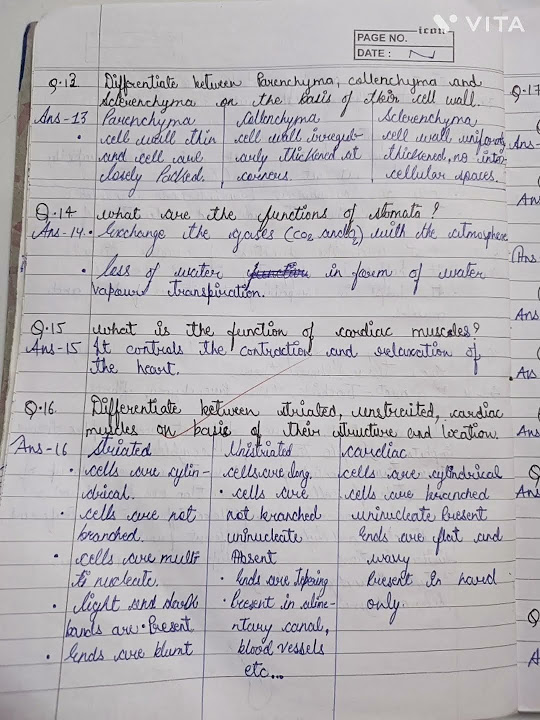 VITA
icon
PAGE NO.
DATE :
Q.13 Differentiate between Parenchyma, collenchyma and
Sclerenchyma on the basis of their cell wall.
Ans-13 Parenchyma Collenchyma Sclerenchyma
• cell wall thin cell wall irregul- cell wall uniformly
and cell are arly thickened at thickened, no inter
closely Packed. corners. cellular spaces.
Q.14 what are the functions of stomata?
Ans-14. • Exchange the gases (CO2 and O2) with the atmosphere
• loss of water function in form of water
vapour transpiration.
Q.15 what is the function of cardiac muscles?
Ans-15 It controls the contraction and relaxation of
the heart.
Q.16 Differentiate between striated, unstraited, cardiac
muscles on basis of their structure and location.
Ans-16 Striated Unistriated cardiac
• cells are cylin- cells are long. cells are cylindrical
drical. • cells are cells are branched
• cells are not not branched uninucleate Present
branched. uninucleate Ends are flat and
• cells are multi Absent wavy
ti nucleate. • Ends are tapering Present In hard
• light and dark • Present in alime- only.
bands are Present ntary canal,
• Ends are blunt blood vessels
etc...
Q.17
Ans-
Ans
Ans
Ans
Ans
Ans-
Ans
Q
A